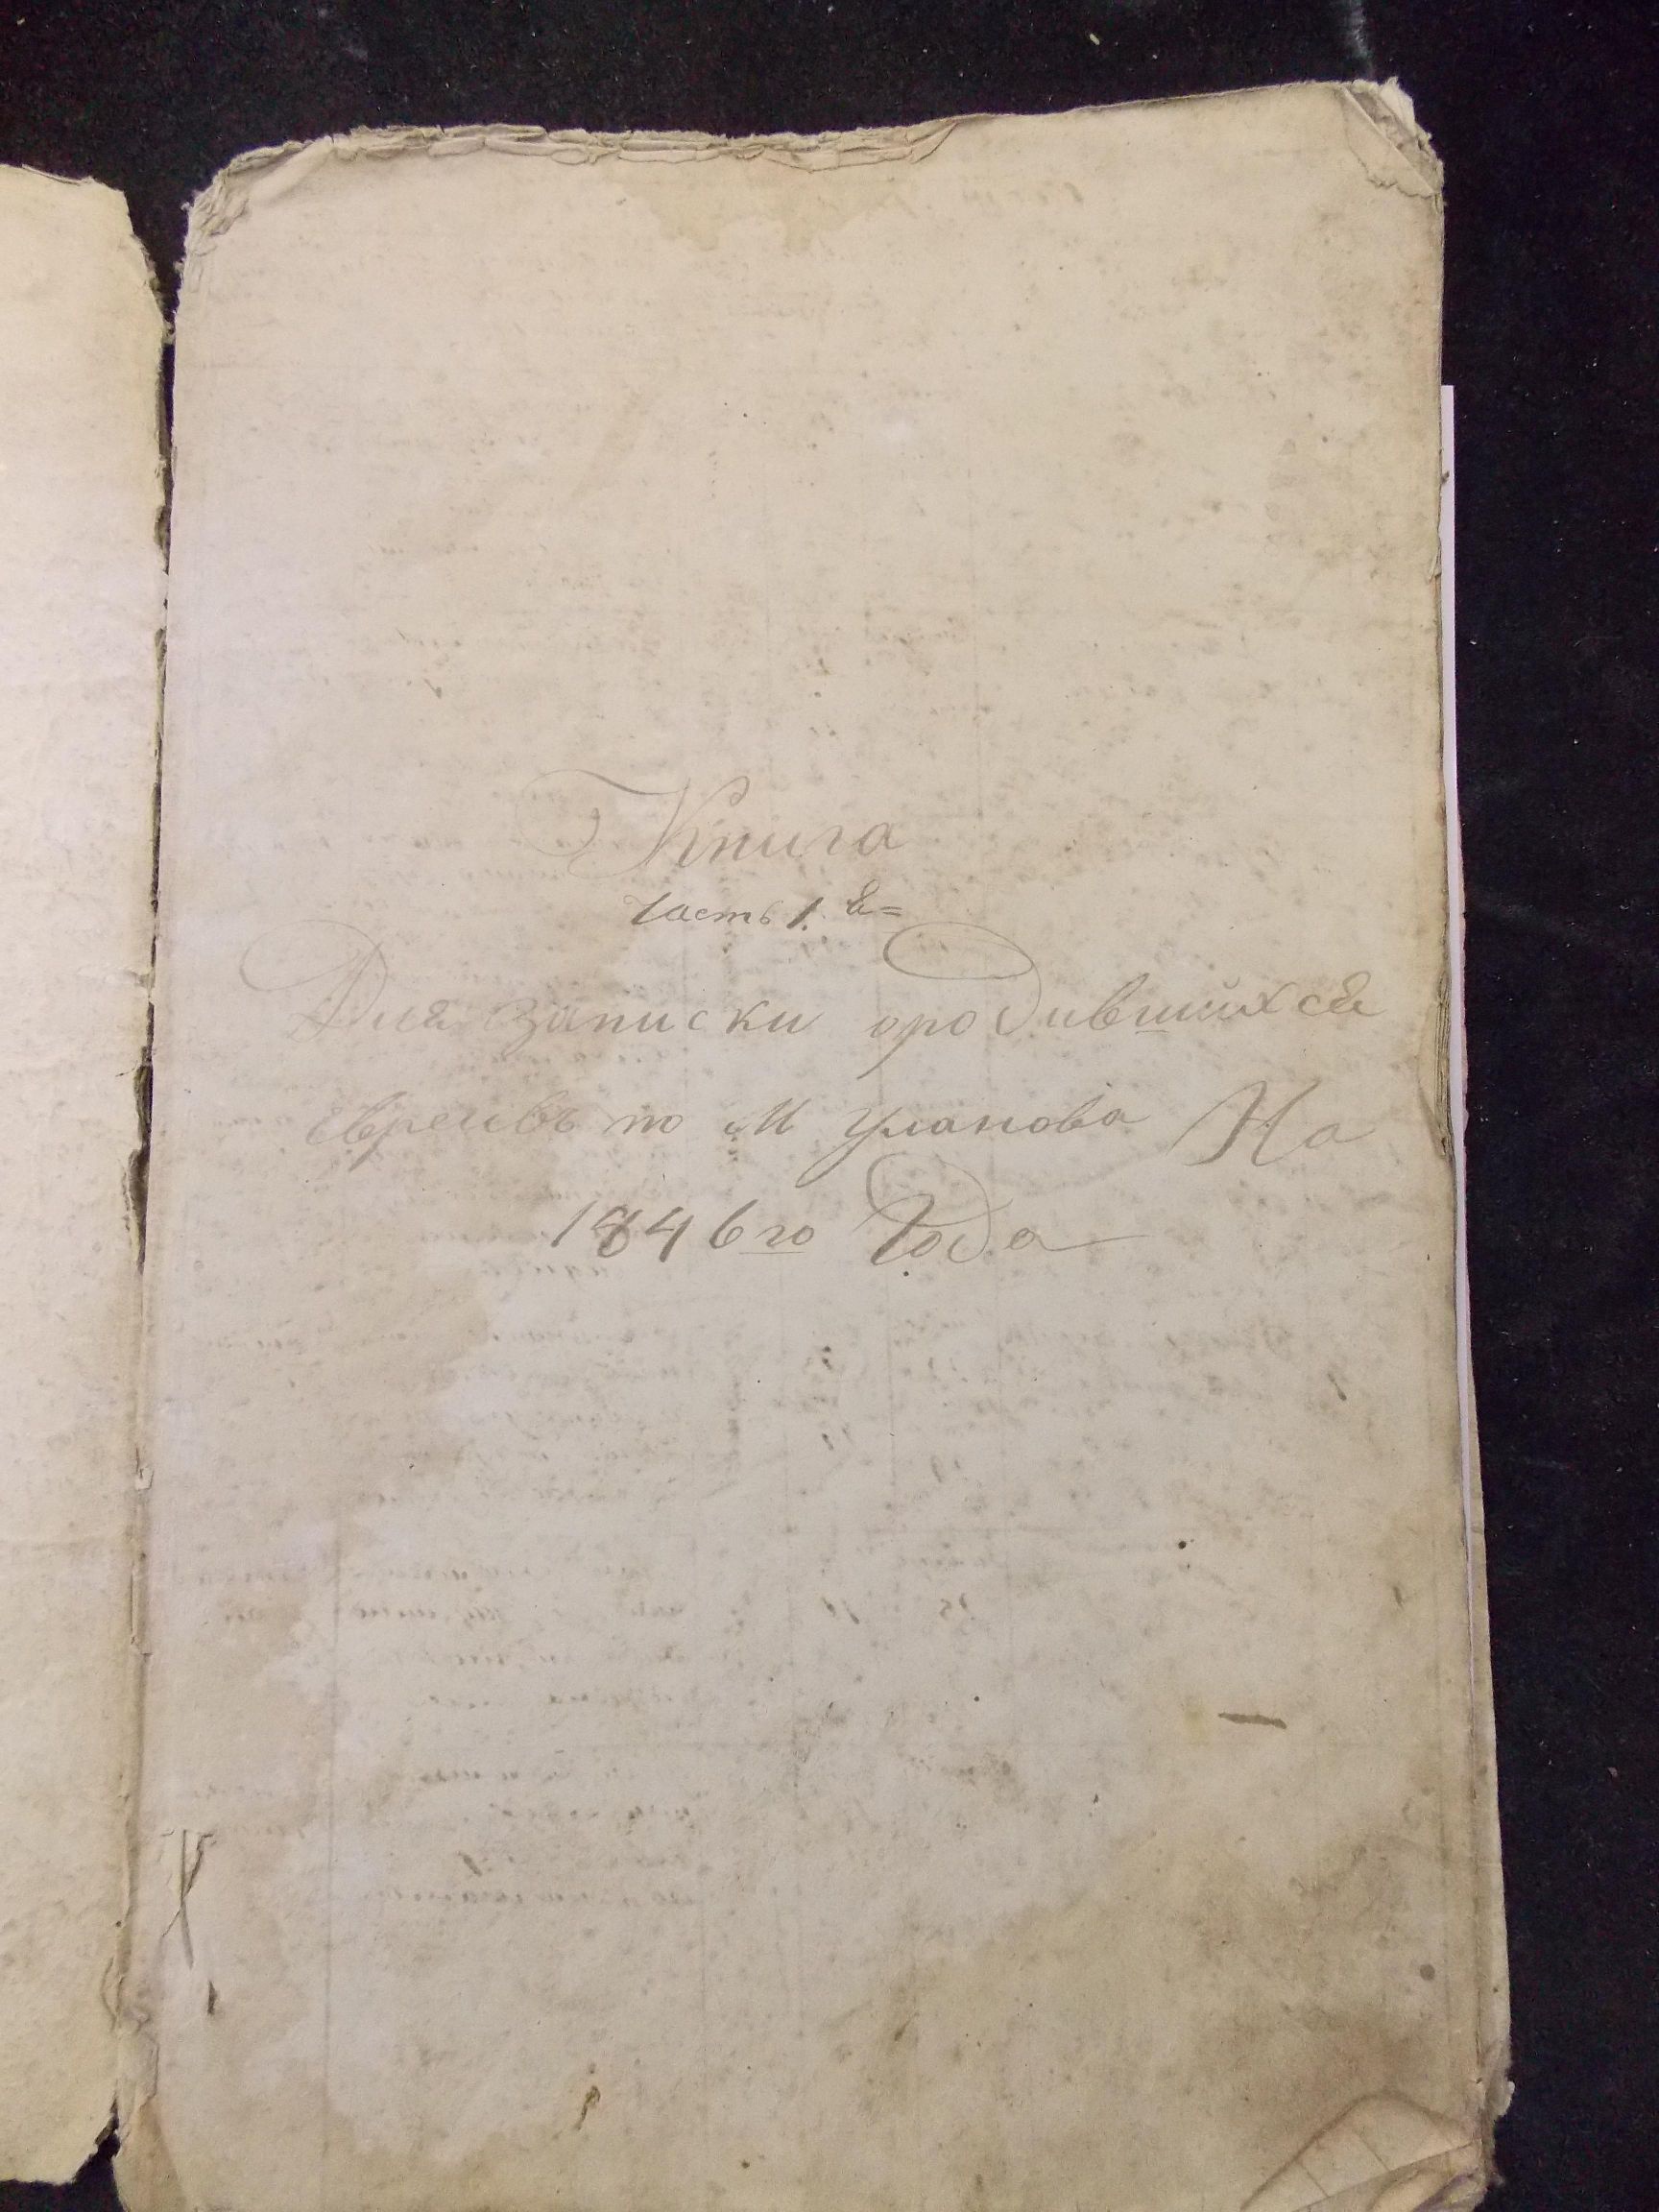 Книга
Часть 1. я=
Для записки ородившихся
Евреивъ по М Уланова На
1846го Года